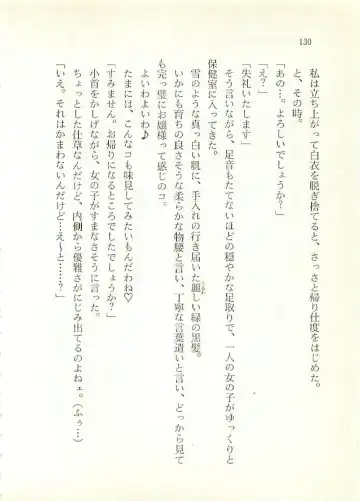 130
私は立ち上がって白衣を脱ぎ捨てると、さっさと帰り仕度をはじめた。
と、その時。
「あの…。よろしいでしょうか？」
「え？」
「失礼いたします」
そう言いながら、足音もたてないほどの穏やかな足取りで、一人の女の子がゆっくりと
保健室に入ってきた。
雪のような真っ白い肌に、手入れの行き届いた麗しい緑の黒髪。
いかにも育ちの良さそうな柔らかな物腰と言い、丁寧な言葉遣いと言い、どっから見て
も完っ璧にお嬢様って感じのコ。
よいわよいわ♪
たまには、こんなコも味見してみたいもんだわね♡
「すみません。お帰りになるところでしたでしょうか？」
小首をかしげながら、女の子がすまなさそうに言った。
ちょっとした仕草なんだけど、内側から優雅さがにじみ出てるのよねェ。（ふぅ…）
「いえ。それはかまわないんだけど…え～と……？」